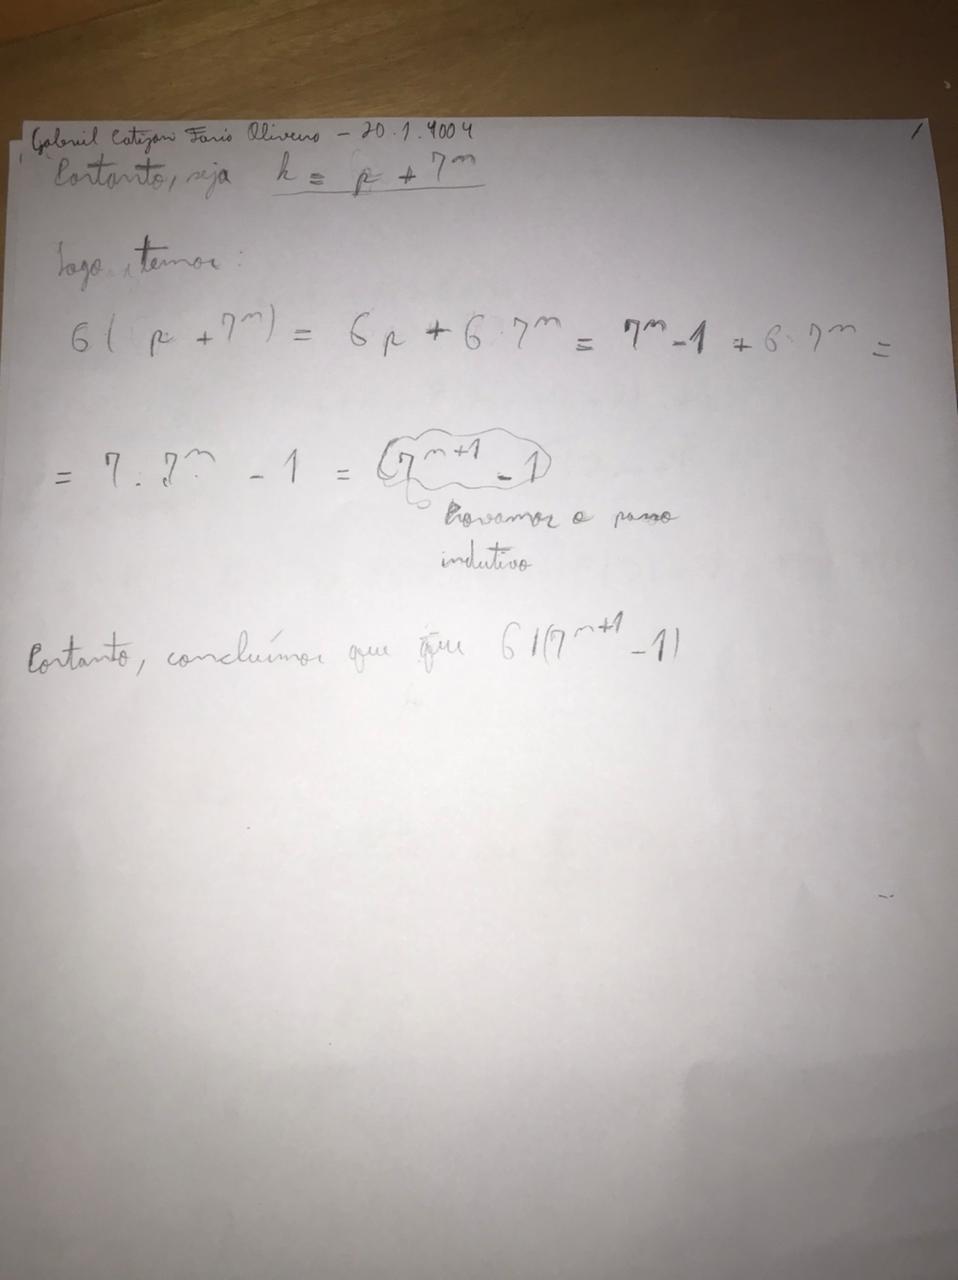 Gabriel Catizani Faria Oliveira - 20.1.4004
Portanto, seja k = p + 7ⁿ
Logo, temos:
6( p + 7ⁿ) = 6p + 6·7ⁿ = 7ⁿ - 1 + 6·7ⁿ =
= 7 . 7ⁿ - 1 = (7ⁿ⁺¹ - 1)
Provamos o passo
indutivo
Portanto, concluímos que que 6|(7ⁿ⁺¹ - 1)